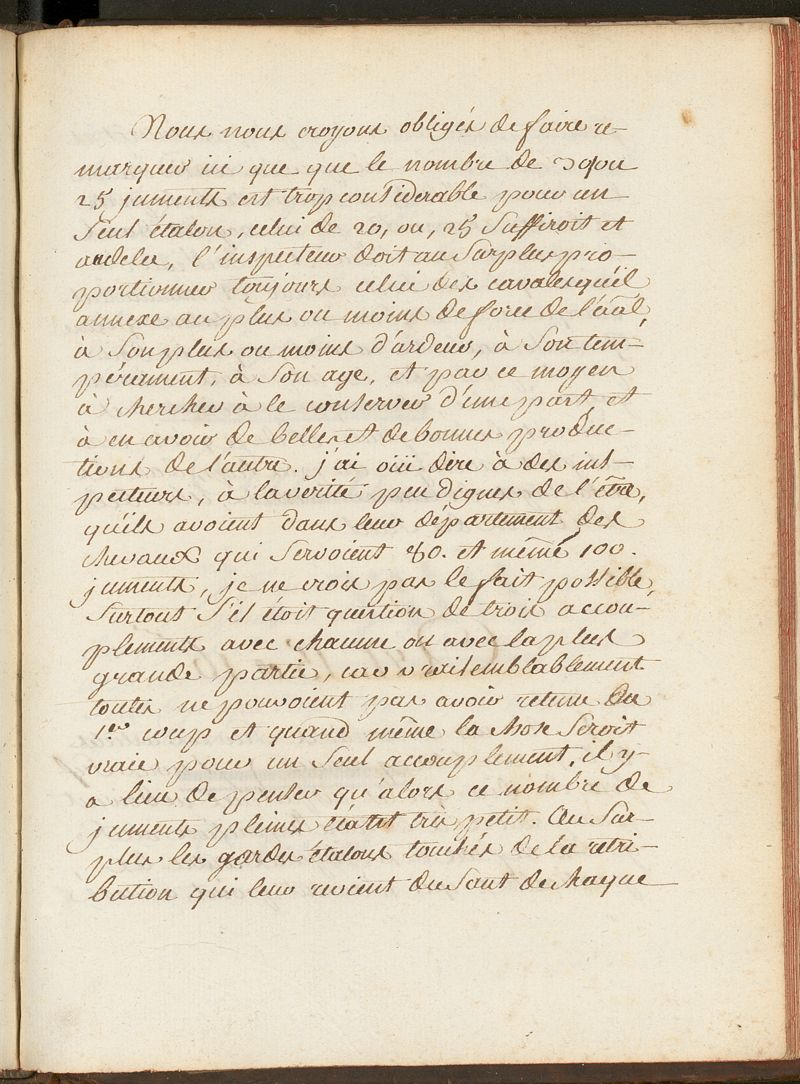 Nous nous croyons obligés de faire re-
marquer ici que que le nombre de 30 ou
25 juments est trop considerable pour un
seul étalon, celui de 20, ou, 25 suffiroit et
audela, l'inspecteur doit au surplus pro-
portionner toujours celui des cavales qu'il
annexe au plus ou moins de force de l'étal,
à son plus ou moins d'ardeur, à son tem-
pérament, à son age, et par ce moyen
à chercher à le conserver d'une part, et
à en avoir de belles et de bonnes produc-
tions de l'autre. j'ai oüi dire à des ins-
pecteurs, à la verité peu dignes de l'être,
qu'ils avoient dans leur département des
chevaux qui servoient 80. et même 100.
juments, je ne crois pas le fait possible,
surtout s'il étoit question de trois accou-
plements avec chacune ou avec la plus
grande partie, car vraisemblablement
toutes ne pouvoient pas avoir retenu du
1.er coup et quand même la chose seroit
vraie pour un seul accouplement, il y-
a lieu de penser qu'alors ce nombre de
juments pleines étatit très petit. Au sur-
plus les gardes étalons touchés de la retri-
bution qui leur revient du saut de chaque